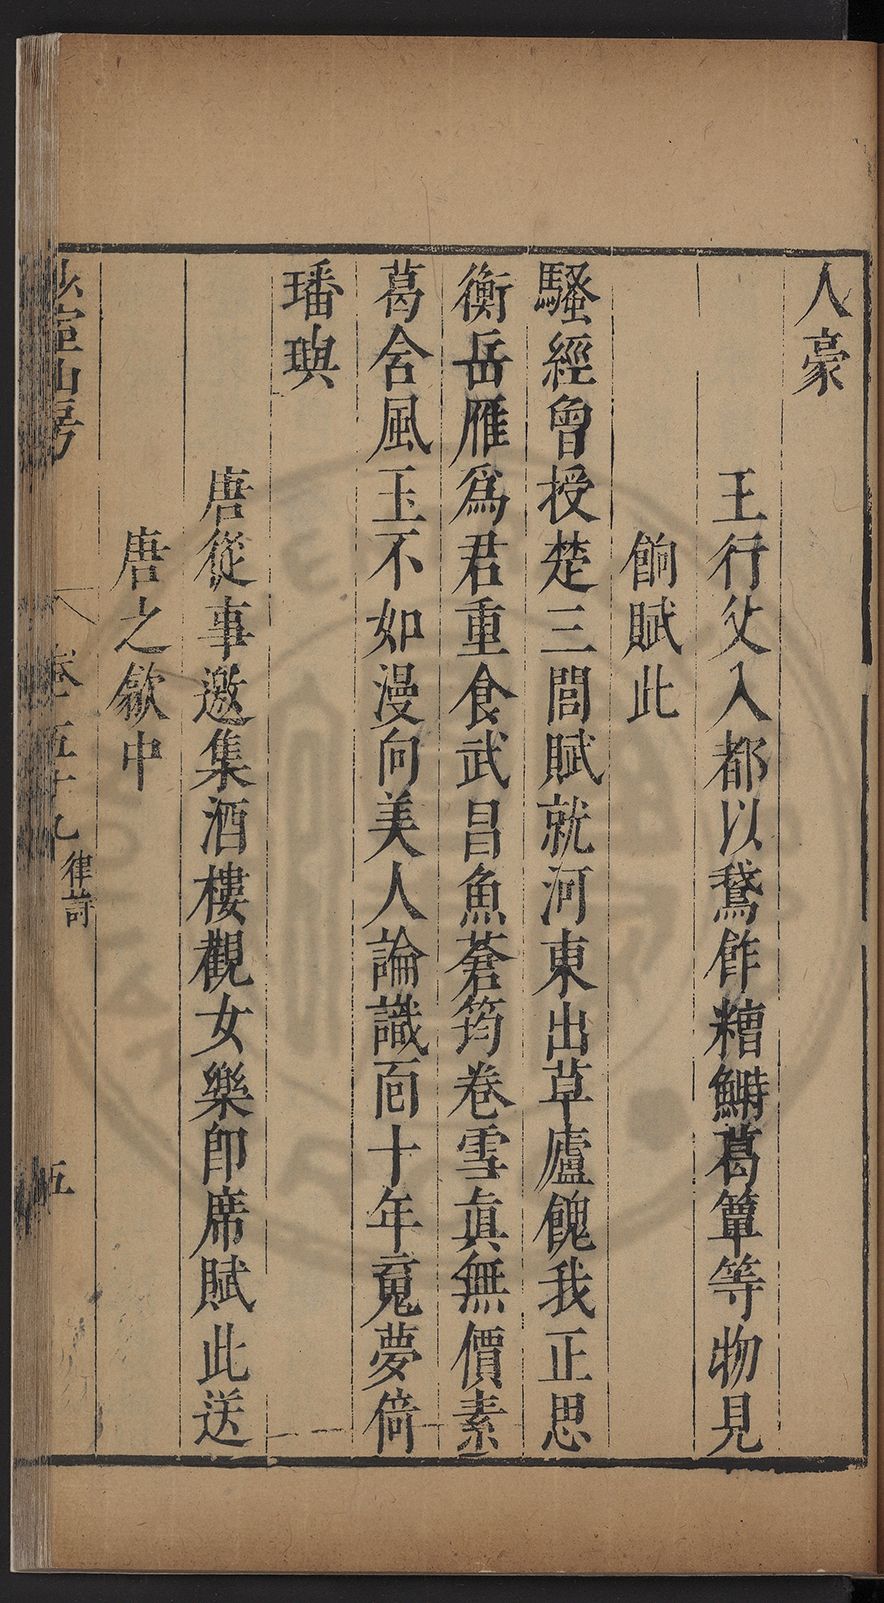 人豪
王行父入都以鵞鲊糟鰣葛簟等物見
餉賦此
騷經曾授楚三閭賦就河東出草廬餽我正思
衡岳雁爲君重食武昌魚蒼筠卷雪眞無價素
葛含風玉不如漫向美人論識面十年䰟夢倚
璠璵
唐從事邀集酒樓觀女樂即席賦此送
唐之歙中
少室山房
卷五十九
律詩
五